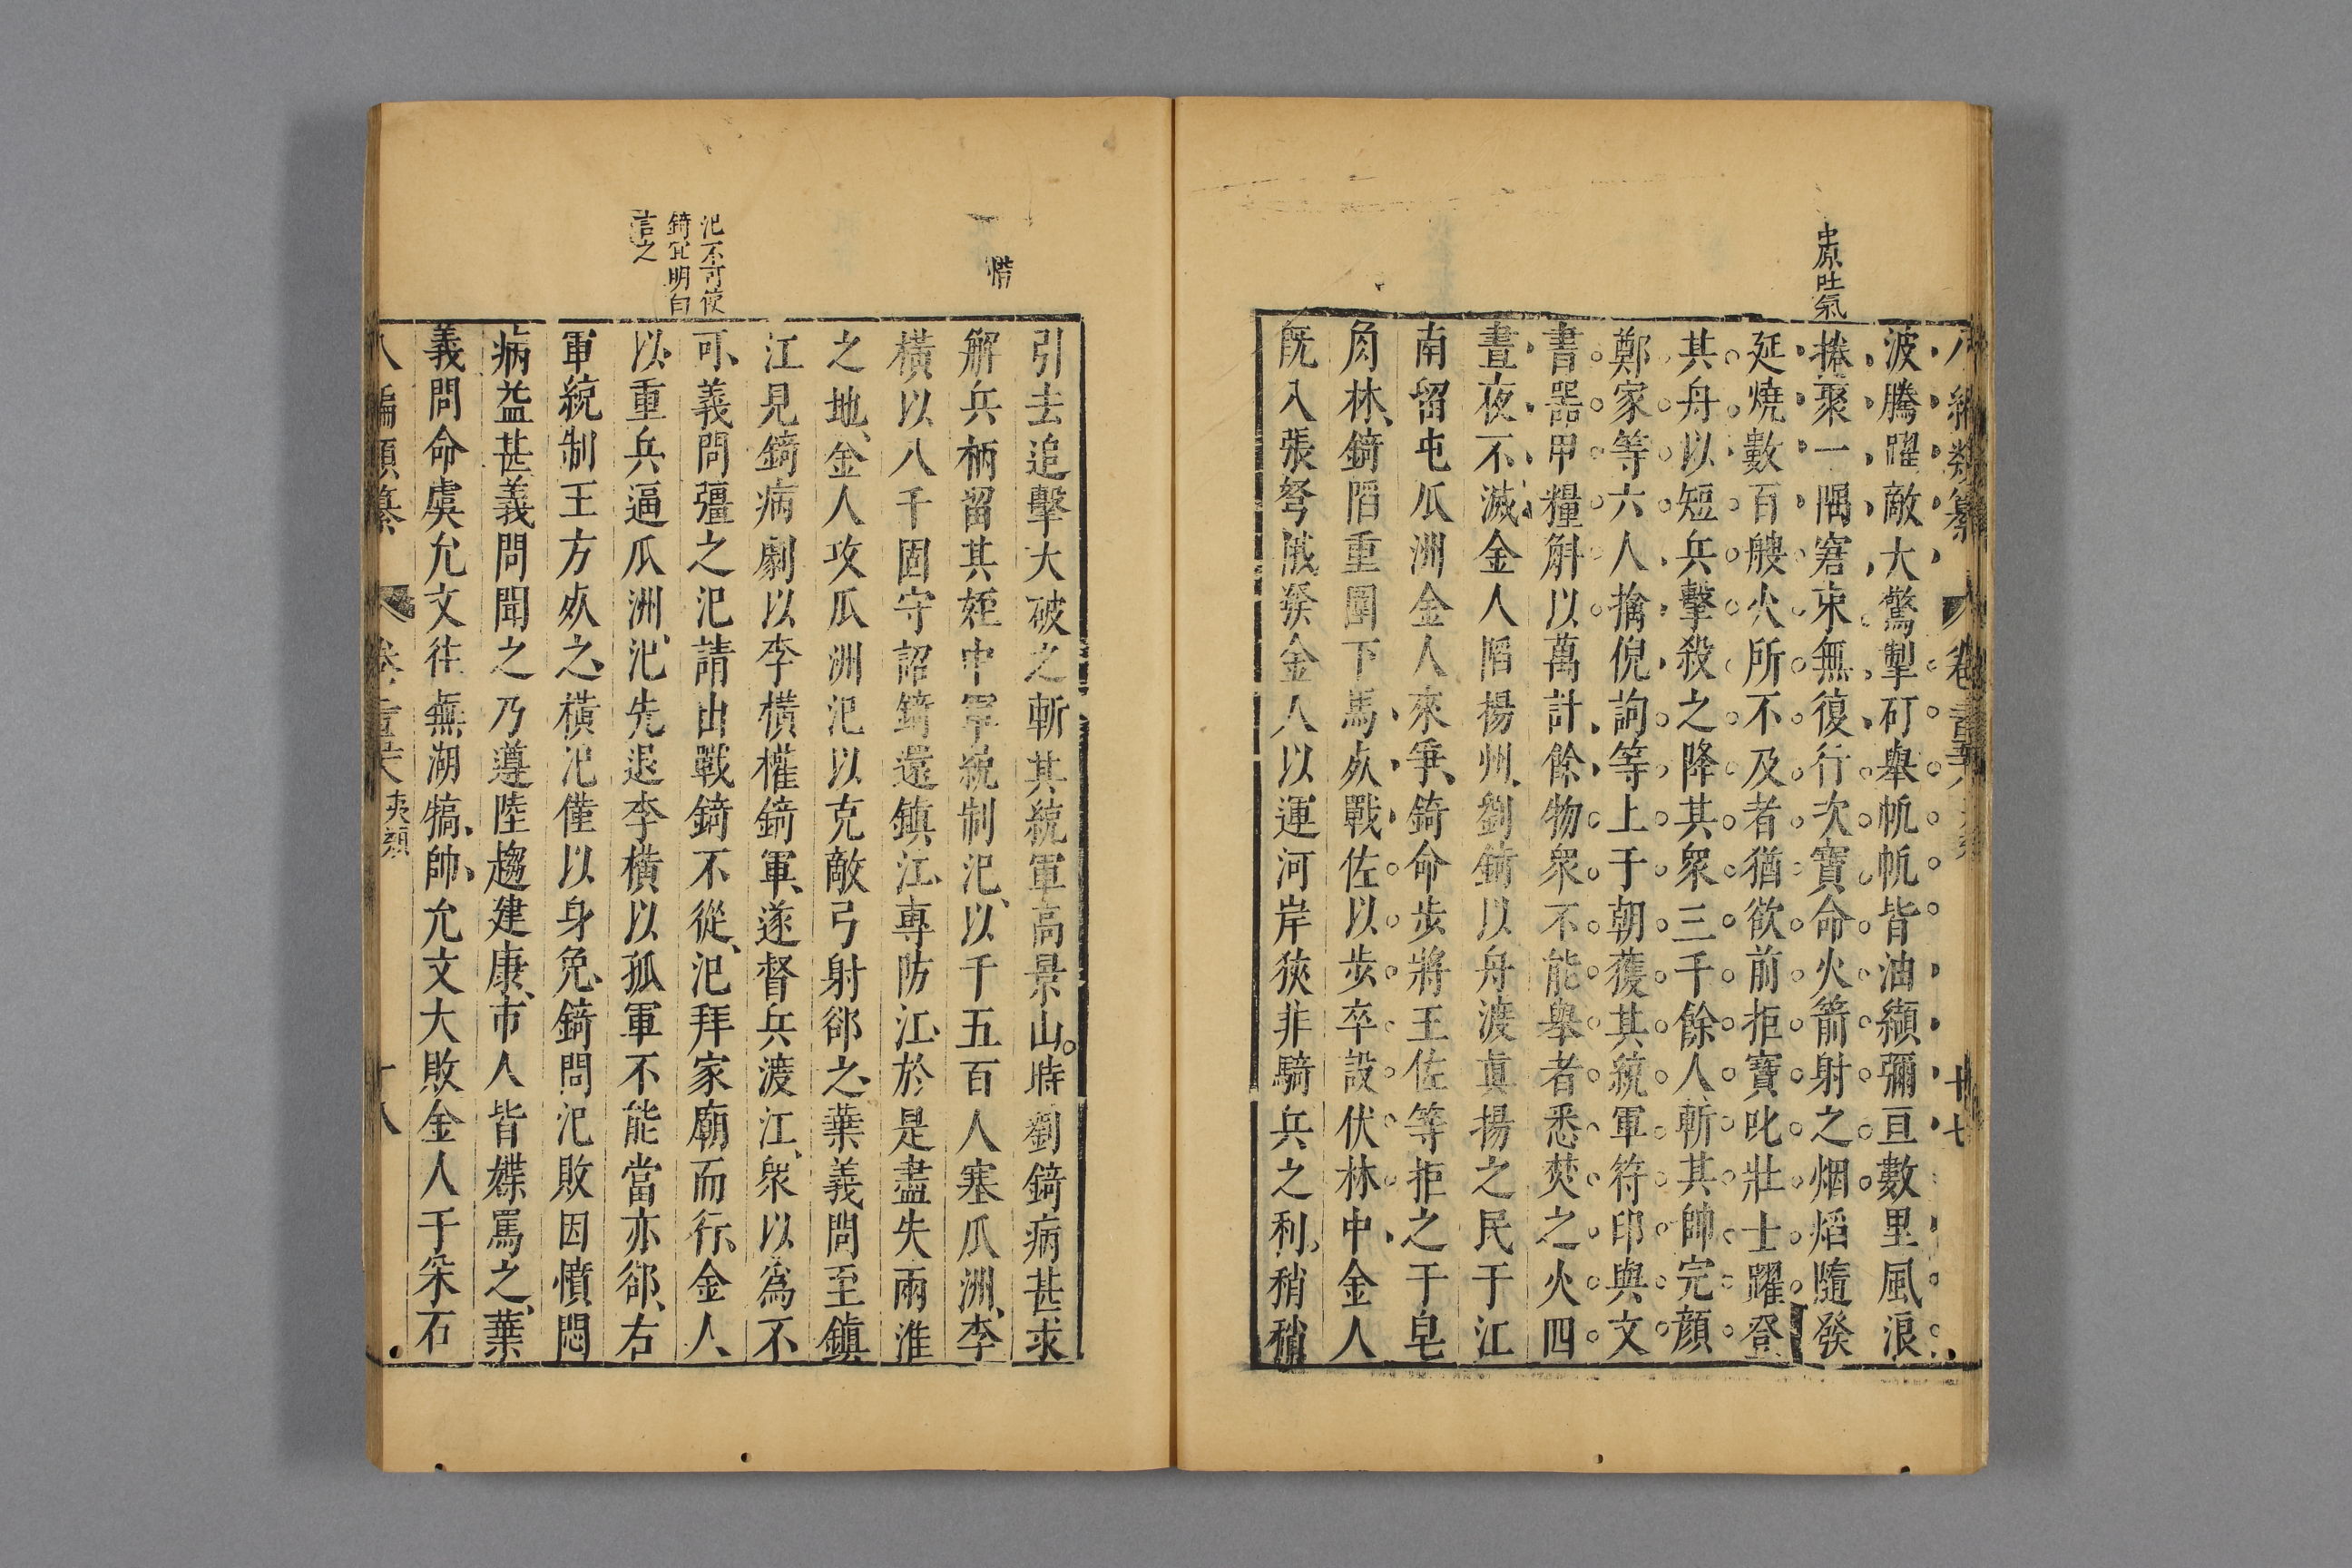 中原吐氣
波騰躍敵大驚掣矴舉帆帆皆油纈彌亘數里風浪
捲聚一隅窘束無復行次寶命火箭射之烟熖隨發
延燒數百艘火所不及者猶欲前拒寶叱壯士躍登
其舟以短兵擊殺之降其衆三千餘人斬其帥完顔
鄭家等六人擒倪詢等上于朝獲其統軍符印與文
書器甲糧斛以萬計餘物衆不能舉者悉焚之火四
晝夜不滅金人陷揚州劉錡以舟渡眞揚之民于江
南留屯瓜洲金人來爭錡命步將王佐等拒之于皂
角林錡陷重圍下馬死戰佐以步卒設伏林中金人
旣入張弩俄發金人以運河岸狹非騎兵之利稍稍
惜
引去追擊大破之斬其統軍高景山時劉錡病甚求
解兵柄留其姪中軍統制汜以千五百人塞瓜洲李
橫以八千固守詔錡還鎮江專防江於是盡失兩淮
之地金人攻瓜洲汜以克敵弓射郤之葉義問至鎮
江見錡病劇以李橫權錡軍遂督兵渡江衆以爲不
汜不可使
錡宜明白
言之
可義問彊之汜請出戰錡不從汜拜家廟而行金人
以重兵逼瓜洲汜先退李橫以孤軍不能當亦郤右
軍統制王方死之橫汜僅以身免錡問汜敗因憤悶
病益甚義問聞之乃遵陸趨建康市人皆媟罵之葉
義問命虞允文往蕪湖犒帥允文大敗金人于采石
八編類纂 夷類 十八